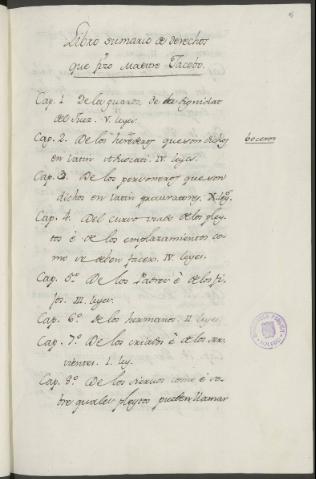 Libro sumario de derechos
que fizo Maestre Jacobo.
Cap. 1 De la guarda de la dignidat
del Juez. V. leyes.
Cap. 2. De los herederos que son dichos
en latin Advocati. IV. leyes.
boceros
Cap. 3. De los personeros que son
dichos en latin procuratores. X. leys.
Cap. 4. Del curso de los pley-
tos è de los emplazamientos co-
mo se deben facer. IV. leyes.
Cap. 5º De los Padres è de los fi-
jos. III. leyes.
Cap. 6º De los hermanos. II. leyes.
Cap. 7º De los criados è de los ser-
vientes. I. ley.
Cap. 8º De los siervos como è so-
bre quales pleytos pueden llamar